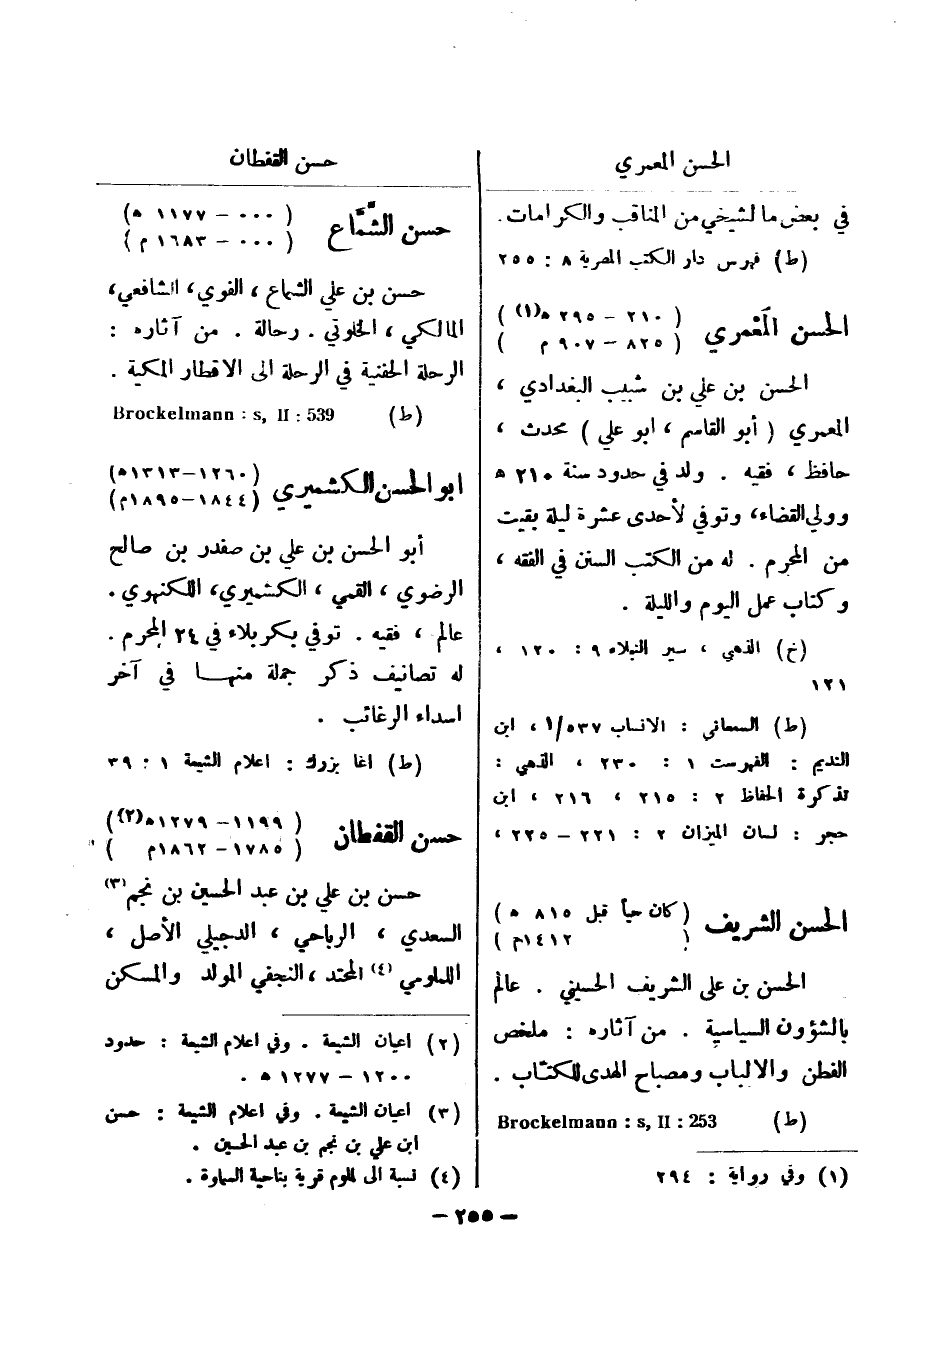 الحسن المعمري
في بعض ما لشيخي من المناقب والكرامات.
(ط) فهرس دار الكتب المصرية ٨ : ٢٥٥
الحسن المَعْمري ( ٢١٠ – ٢٩٥ ه(١) )
( ٨٢٥ – ٩٠٧ م )
الحسن بن علي بن شبيب البغدادي ،
المعمري ( أبو القاسم ، ابو علي ) محدث ،
حافظ ، فقيه . ولد في حدود سنة ٢١٠ ه
وولي القضاء، وتوفي لأحدى عشرة ليلة بقيت
من المحرم . له من الكتب السنن في الفقه ،
وكتاب عمل اليوم والليلة .
(خ) الذهبي ، سير النبلاء ٩ : ١٢٠ ،
١٢١
(ط) السمعاني : الانساب ٥٣٧/١ ، ابن
النديم : الفهرست ١ : ٢٣٠ ، الذهبي :
تذكرة الحفاظ ٢ : ٢١٥ ، ٢١٦ ، ابن
حجر : لسان الميزان ٢ : ٢٢١ – ٢٢٥ ،
الحسن الشريف ( كان حياً قبل ٨١٥ ه )
( ١٤١٢م )
الحسن بن علي الشريف الحسيني . عالم
بالشؤون السياسية . من آثاره : ملخص
الفطن والالباب ومصباح الهدى للكتّاب .
(ط) Brockelmann : s, II : 253
(١) وفي رواية : ٢٩٤
حسن القفطان
حسن الشَّمَّاع ( ٠٠٠ – ١١٧٧ ه )
( ٠٠٠ – ١٦٨٣ م )
حسن بن علي الشماع ، الفوي، الشافعي،
المالكي ، الخلوتي . رحالة . من آثاره :
الرحلة الحفنية في الرحلة الى الاقطار المكية .
(ط) Brockelmann : s, II : 539
ابو الحسن الكشميري (١٢٦٠–١٣١٣ه)
(١٨٤٤–١٨٩٥م)
أبو الحسن بن علي بن صفدر بن صالح
الرضوي ، القمي ، الكشميري، اللكنهوي .
عالم ، فقيه . توفي بكربلاء في ٢٤ المحرم .
له تصانيف ذكر جملة منها في آخر
اسداء الرغائب .
(ط) اغا بزرك : اعلام الشيعة ١ : ٣٩
حسن القفطان ( ١١٩٩–١٢٧٩ه(٢))
( ١٧٨٥–١٨٦٢م )
حسن بن علي بن عبد الحسين بن نجم(٣)
السعدي ، الرباحي ، الدجيلي الأصل ،
اللملومي (٤) المحتد ، النجفي المولد والمسكن
(٢) اعيان الشيعة . وفي اعلام الشيعة : حدود
١٢٠٠ – ١٢٧٧ ه .
(٣) اعيان الشيعة . وفي اعلام الشيعة : حسن
ابن علي بن نجم بن عبد الحسين .
(٤) نسبة الى لملوم قرية بناحية السماوة .
– ٢٥٥ –